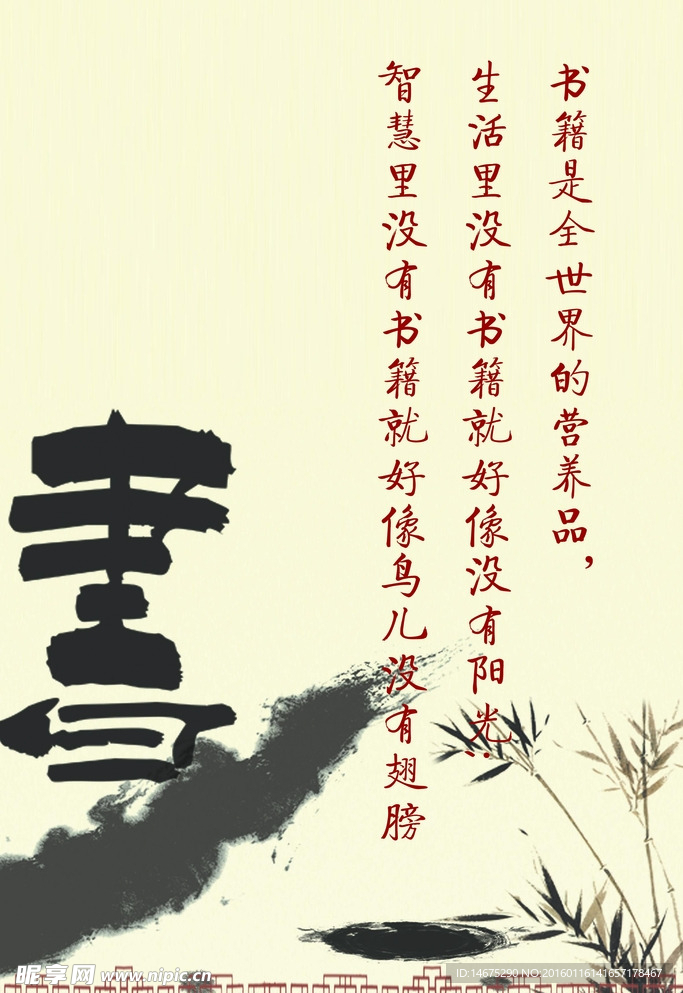 书籍是全世界的营养品，
生活里没有书籍就好像没有阳光；
智慧里没有书籍就好像鸟儿没有翅膀
書
昵享网 www.nipic.cn
ID:14675290 NO:20160116141657178467